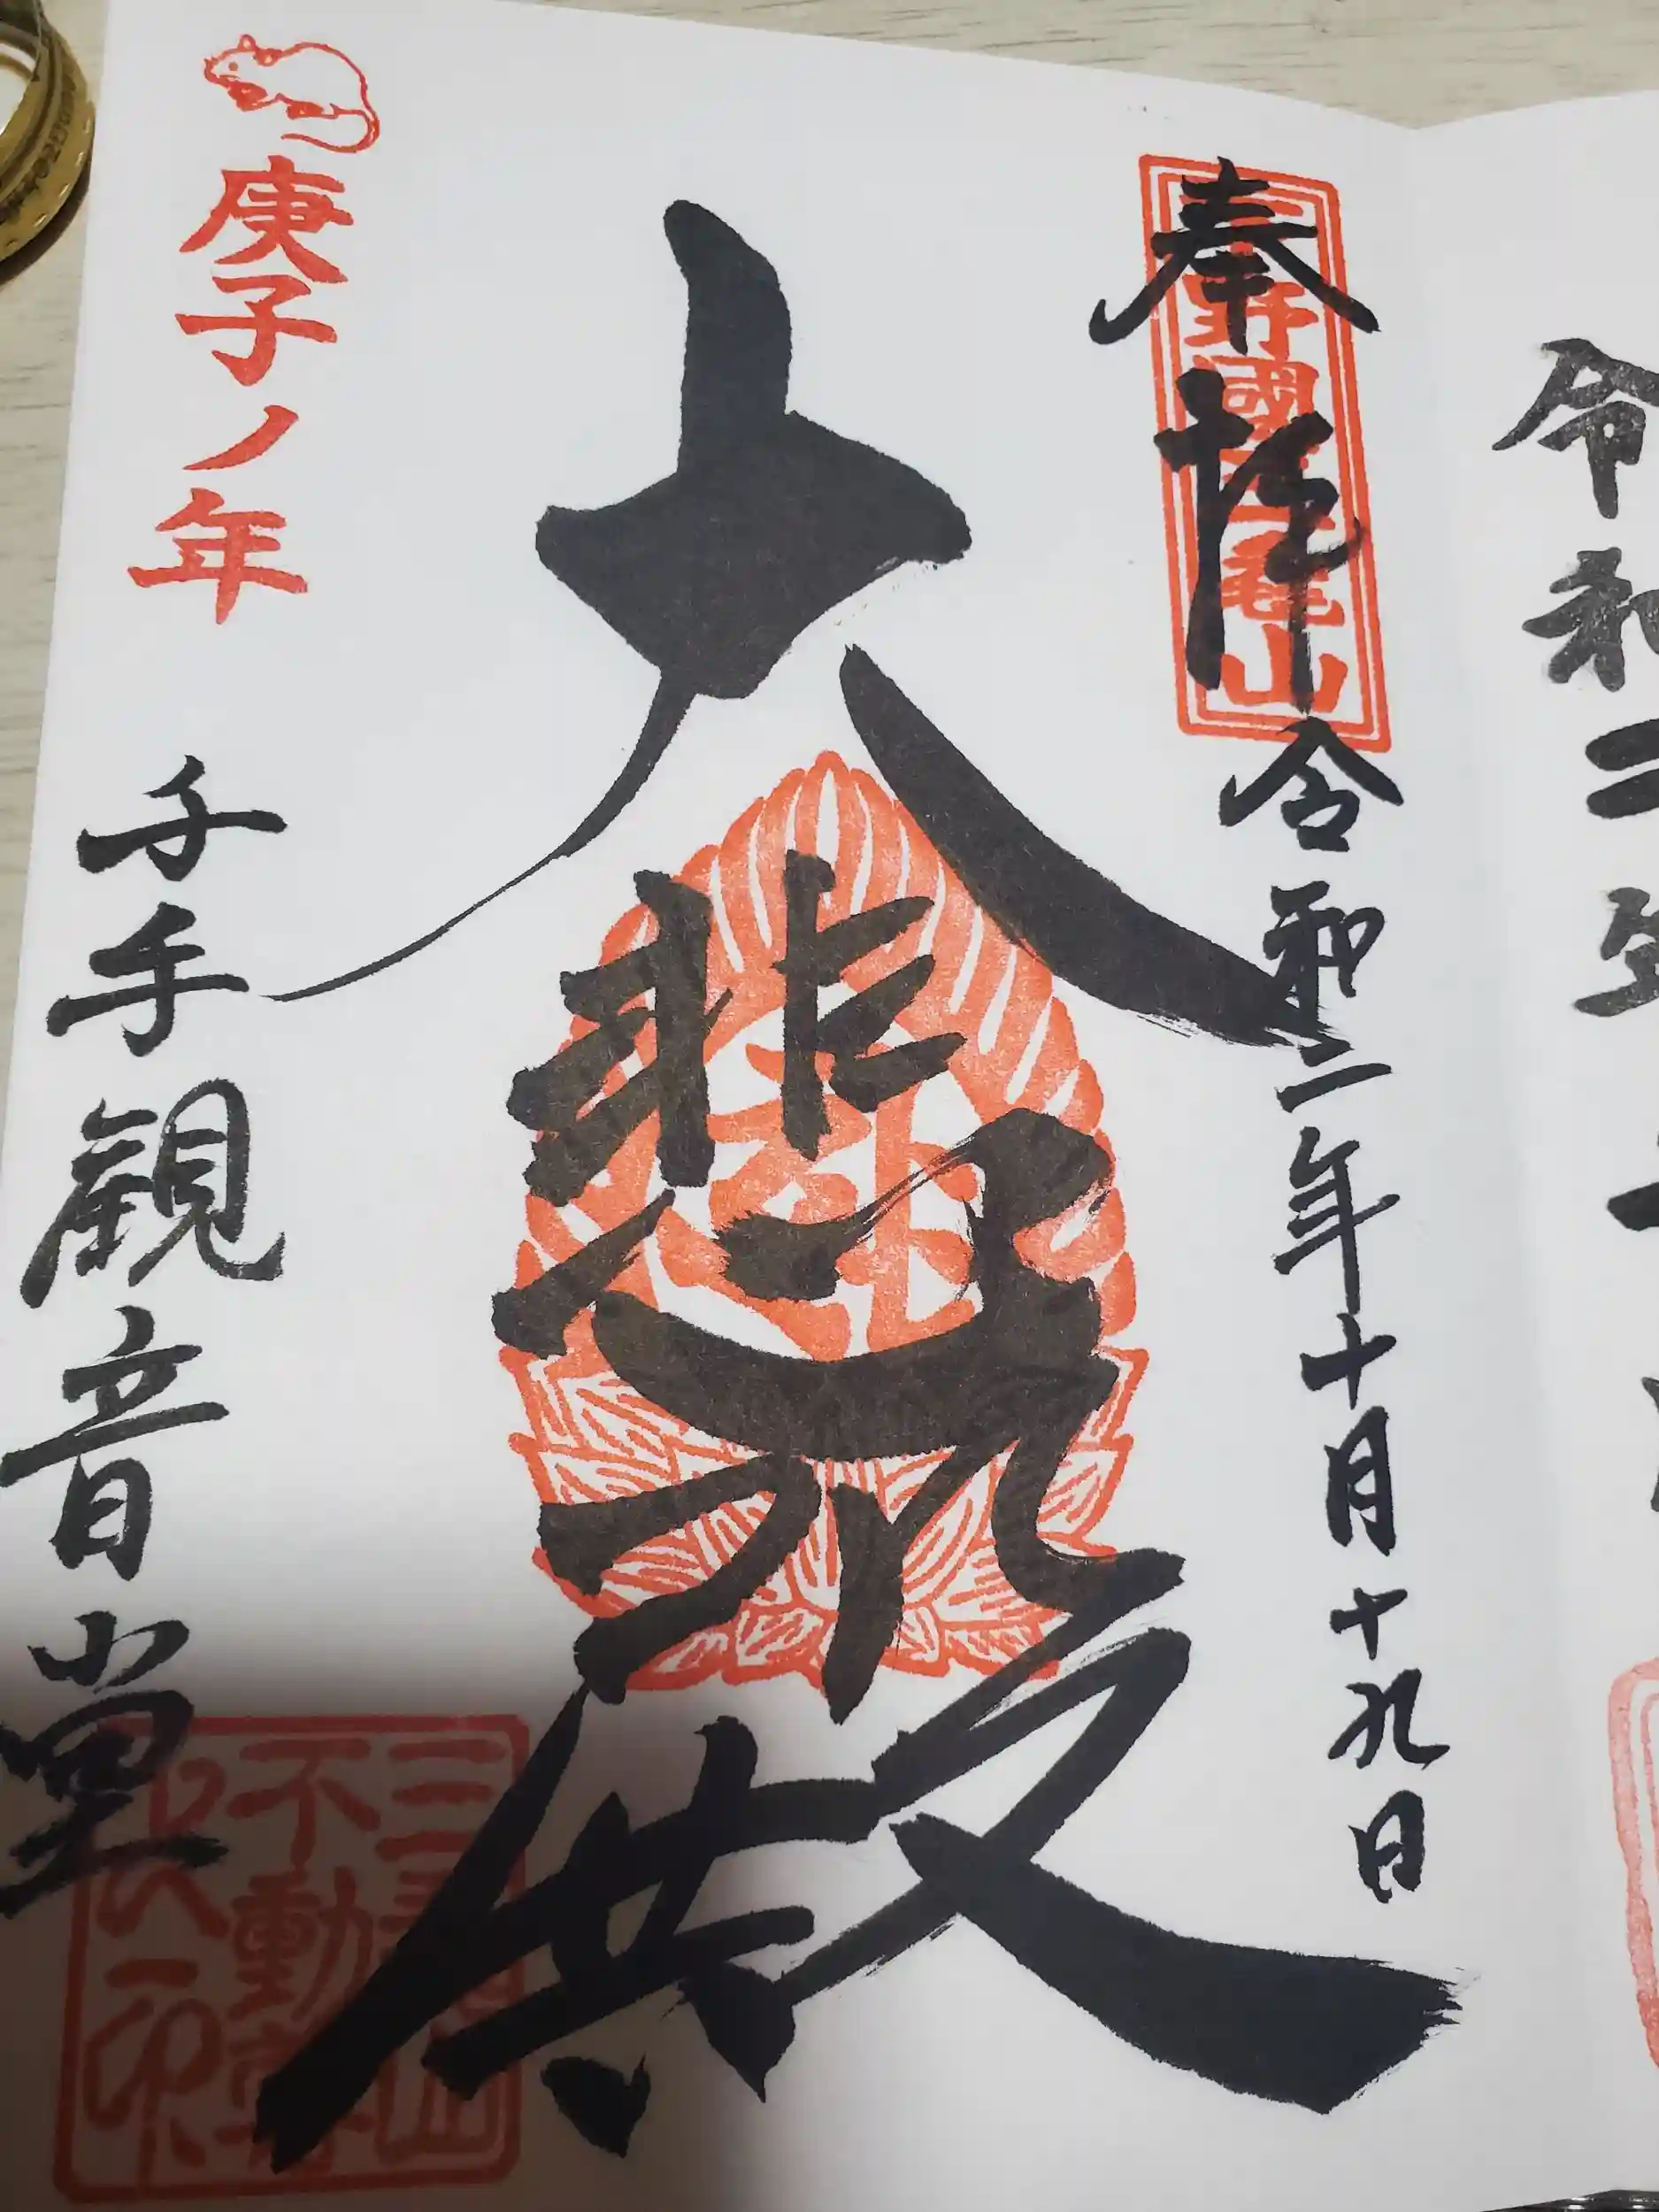 令和二
奉拝
令和二年十月十九日
野國三毳山
大悲殿
庚子ノ年
千手観音堂
不動
印